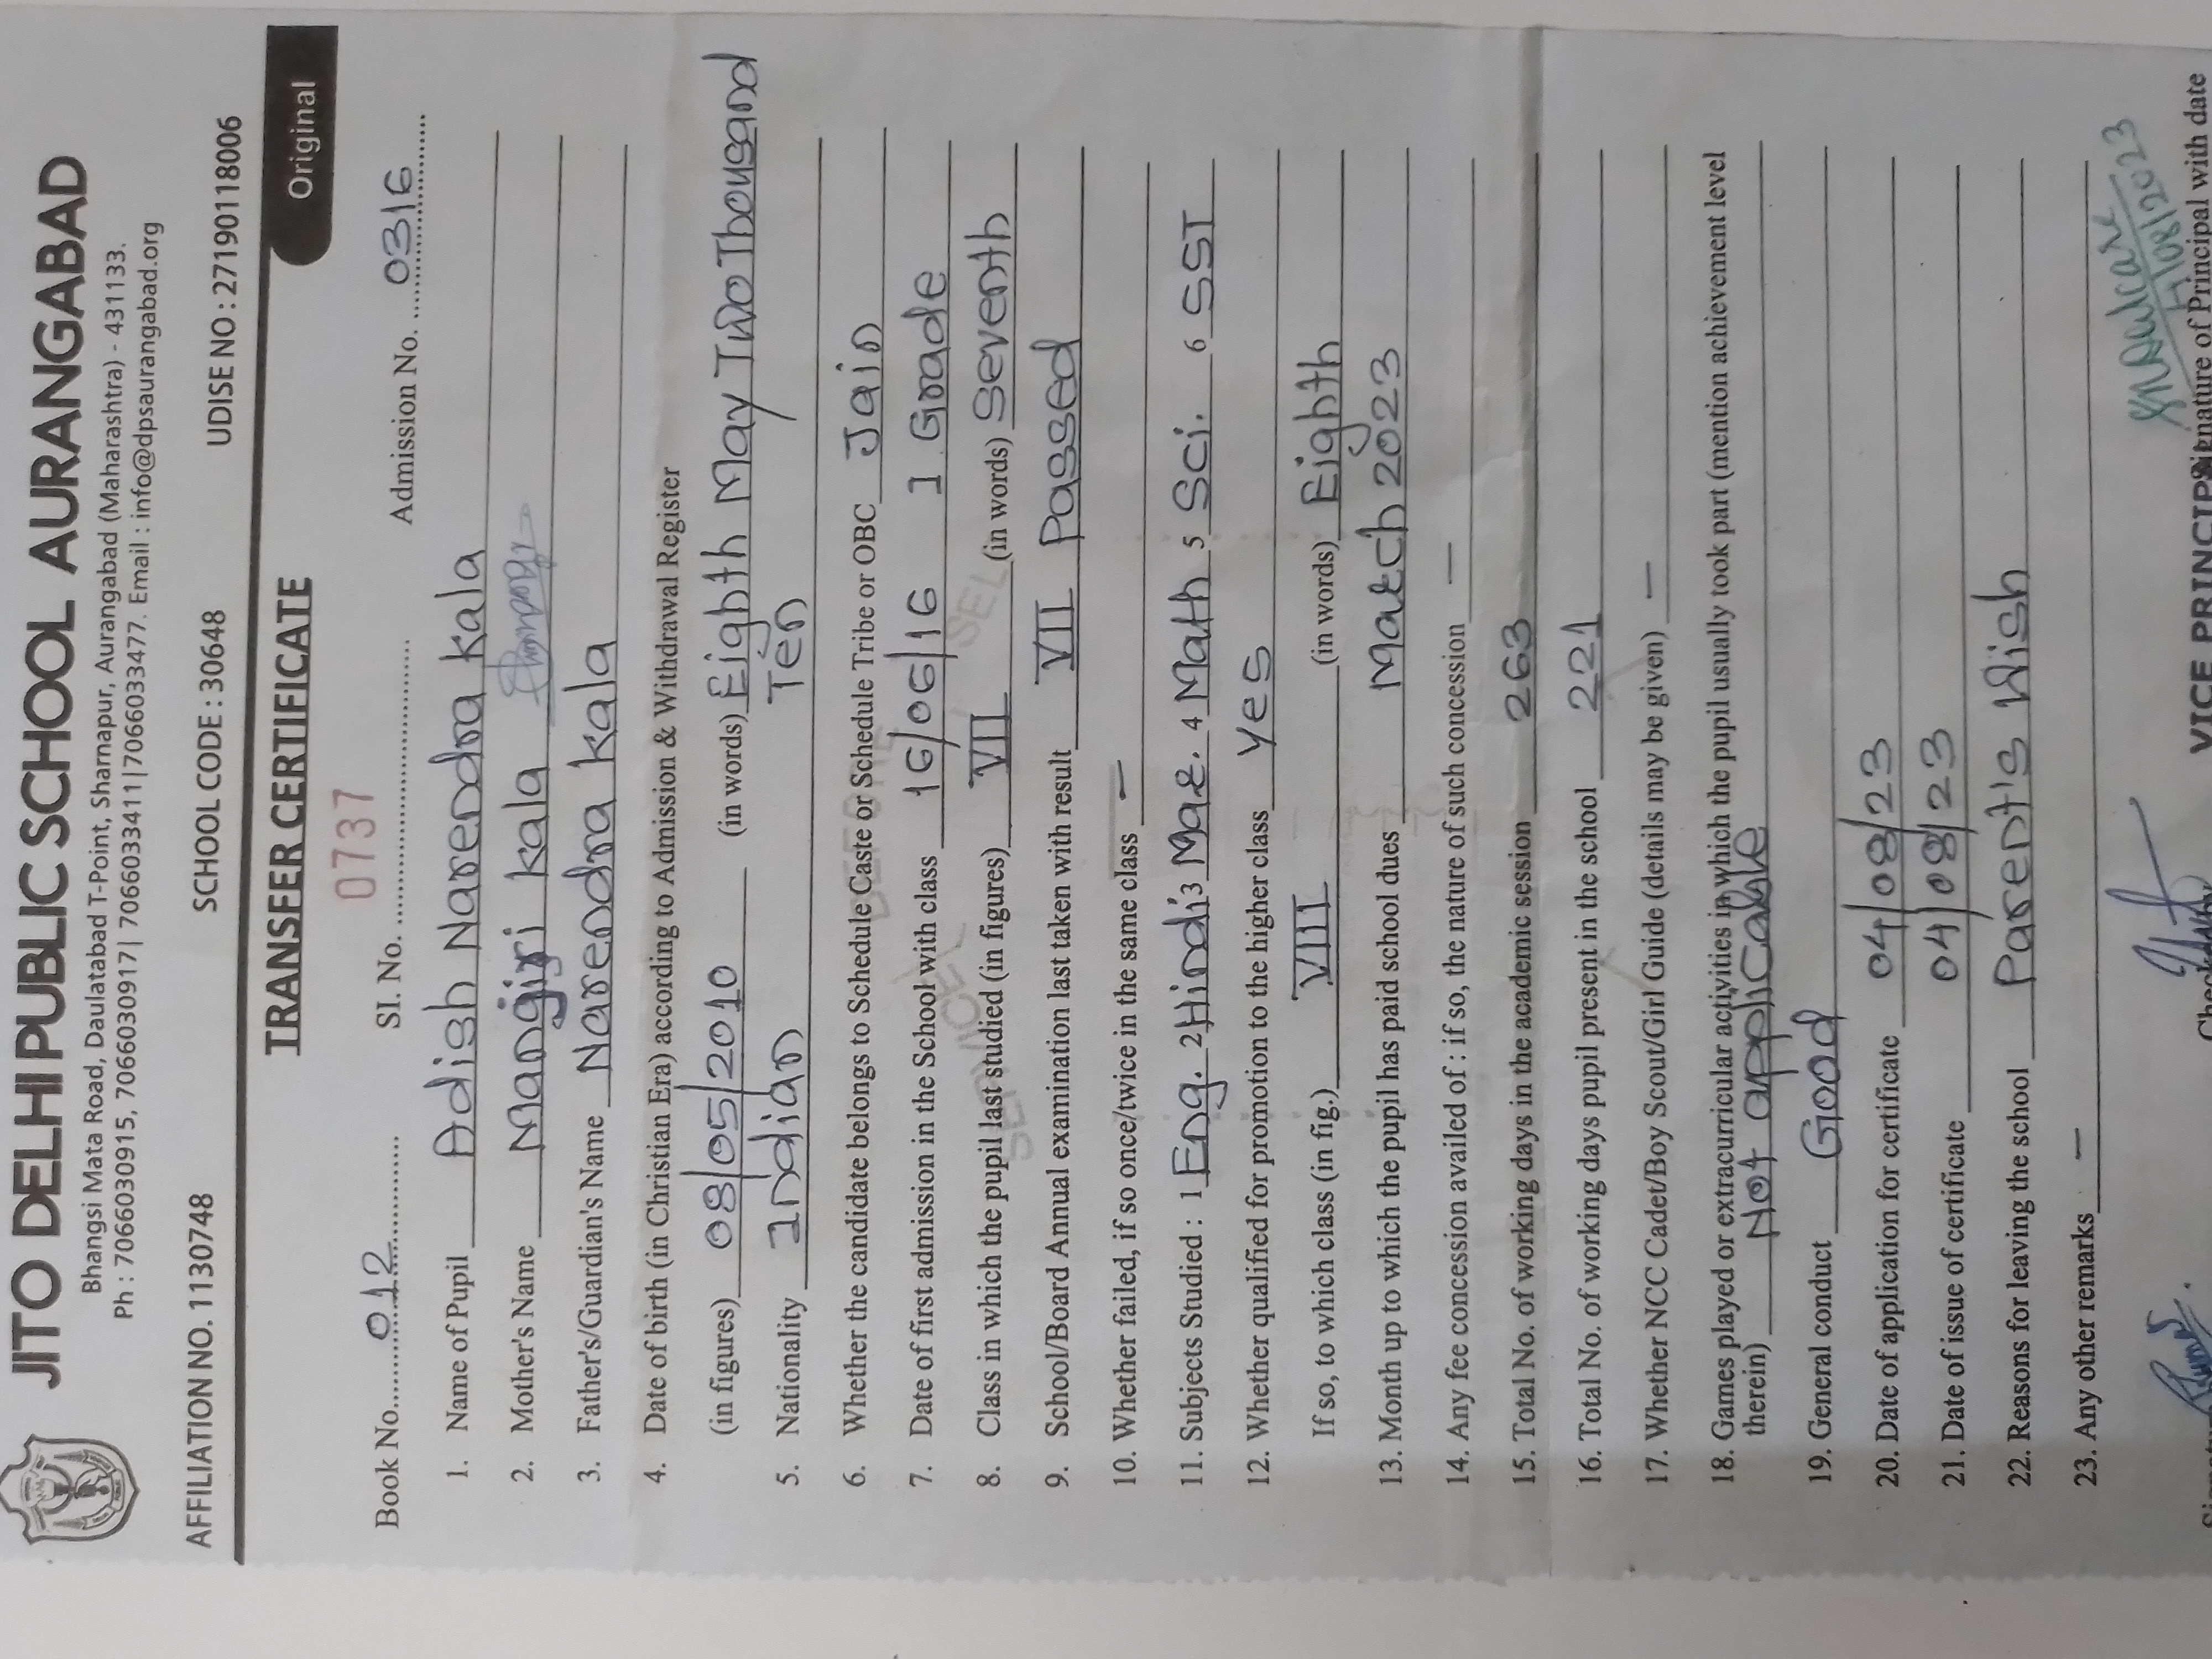 JITO DELHI PUBLIC SCHOOL AURANGABAD
Bhangsi Mata Road, Daulatabad T-Point, Sharnapur, Aurangabad (Maharashtra) - 431133.
Ph : 7066030915, 7066030917| 7066033411|7066033477. Email : info@dpsaurangabad.org
AFFILIATION NO. 1130748 SCHOOL CODE : 30648 UDISE NO : 27190118006
TRANSFER CERTIFICATE
Original
0737
Book No. 012 SI. No. Admission No. 0316
1. Name of Pupil Adish Narendra Kala
2. Mother's Name Mangiri Kala
3. Father's/Guardian's Name Narendra Kala
4. Date of birth (in Christian Era) according to Admission & Withdrawal Register
(in figures) 08/05/2010 (in words) Eighth May Two Thousand
Ten
5. Nationality Indian
6. Whether the candidate belongs to Schedule Caste or Schedule Tribe or OBC Jain
7. Date of first admission in the School with class 16/06/16 I Grade
8. Class in which the pupil last studied (in figures) VII (in words) Seventh
9. School/Board Annual examination last taken with result VII Passed
10. Whether failed, if so once/twice in the same class —
11. Subjects Studied : 1 Eng. 2 Hindi 3 Mar. 4 Math 5 Sci. 6 SST
12. Whether qualified for promotion to the higher class Yes
If so, to which class (in fig.) VIII (in words) Eighth
13. Month up to which the pupil has paid school dues March 2023
14. Any fee concession availed of : if so, the nature of such concession —
15. Total No. of working days in the academic session 263
16. Total No. of working days pupil present in the school 221
17. Whether NCC Cadet/Boy Scout/Girl Guide (details may be given) —
18. Games played or extracurricular activities in which the pupil usually took part (mention achievement level
therein) Not applicable
19. General conduct Good
20. Date of application for certificate 04/08/23
21. Date of issue of certificate 04/08/23
22. Reasons for leaving the school Parent's Wish
23. Any other remarks —
VICE PRINCIP
nature of Principal with date